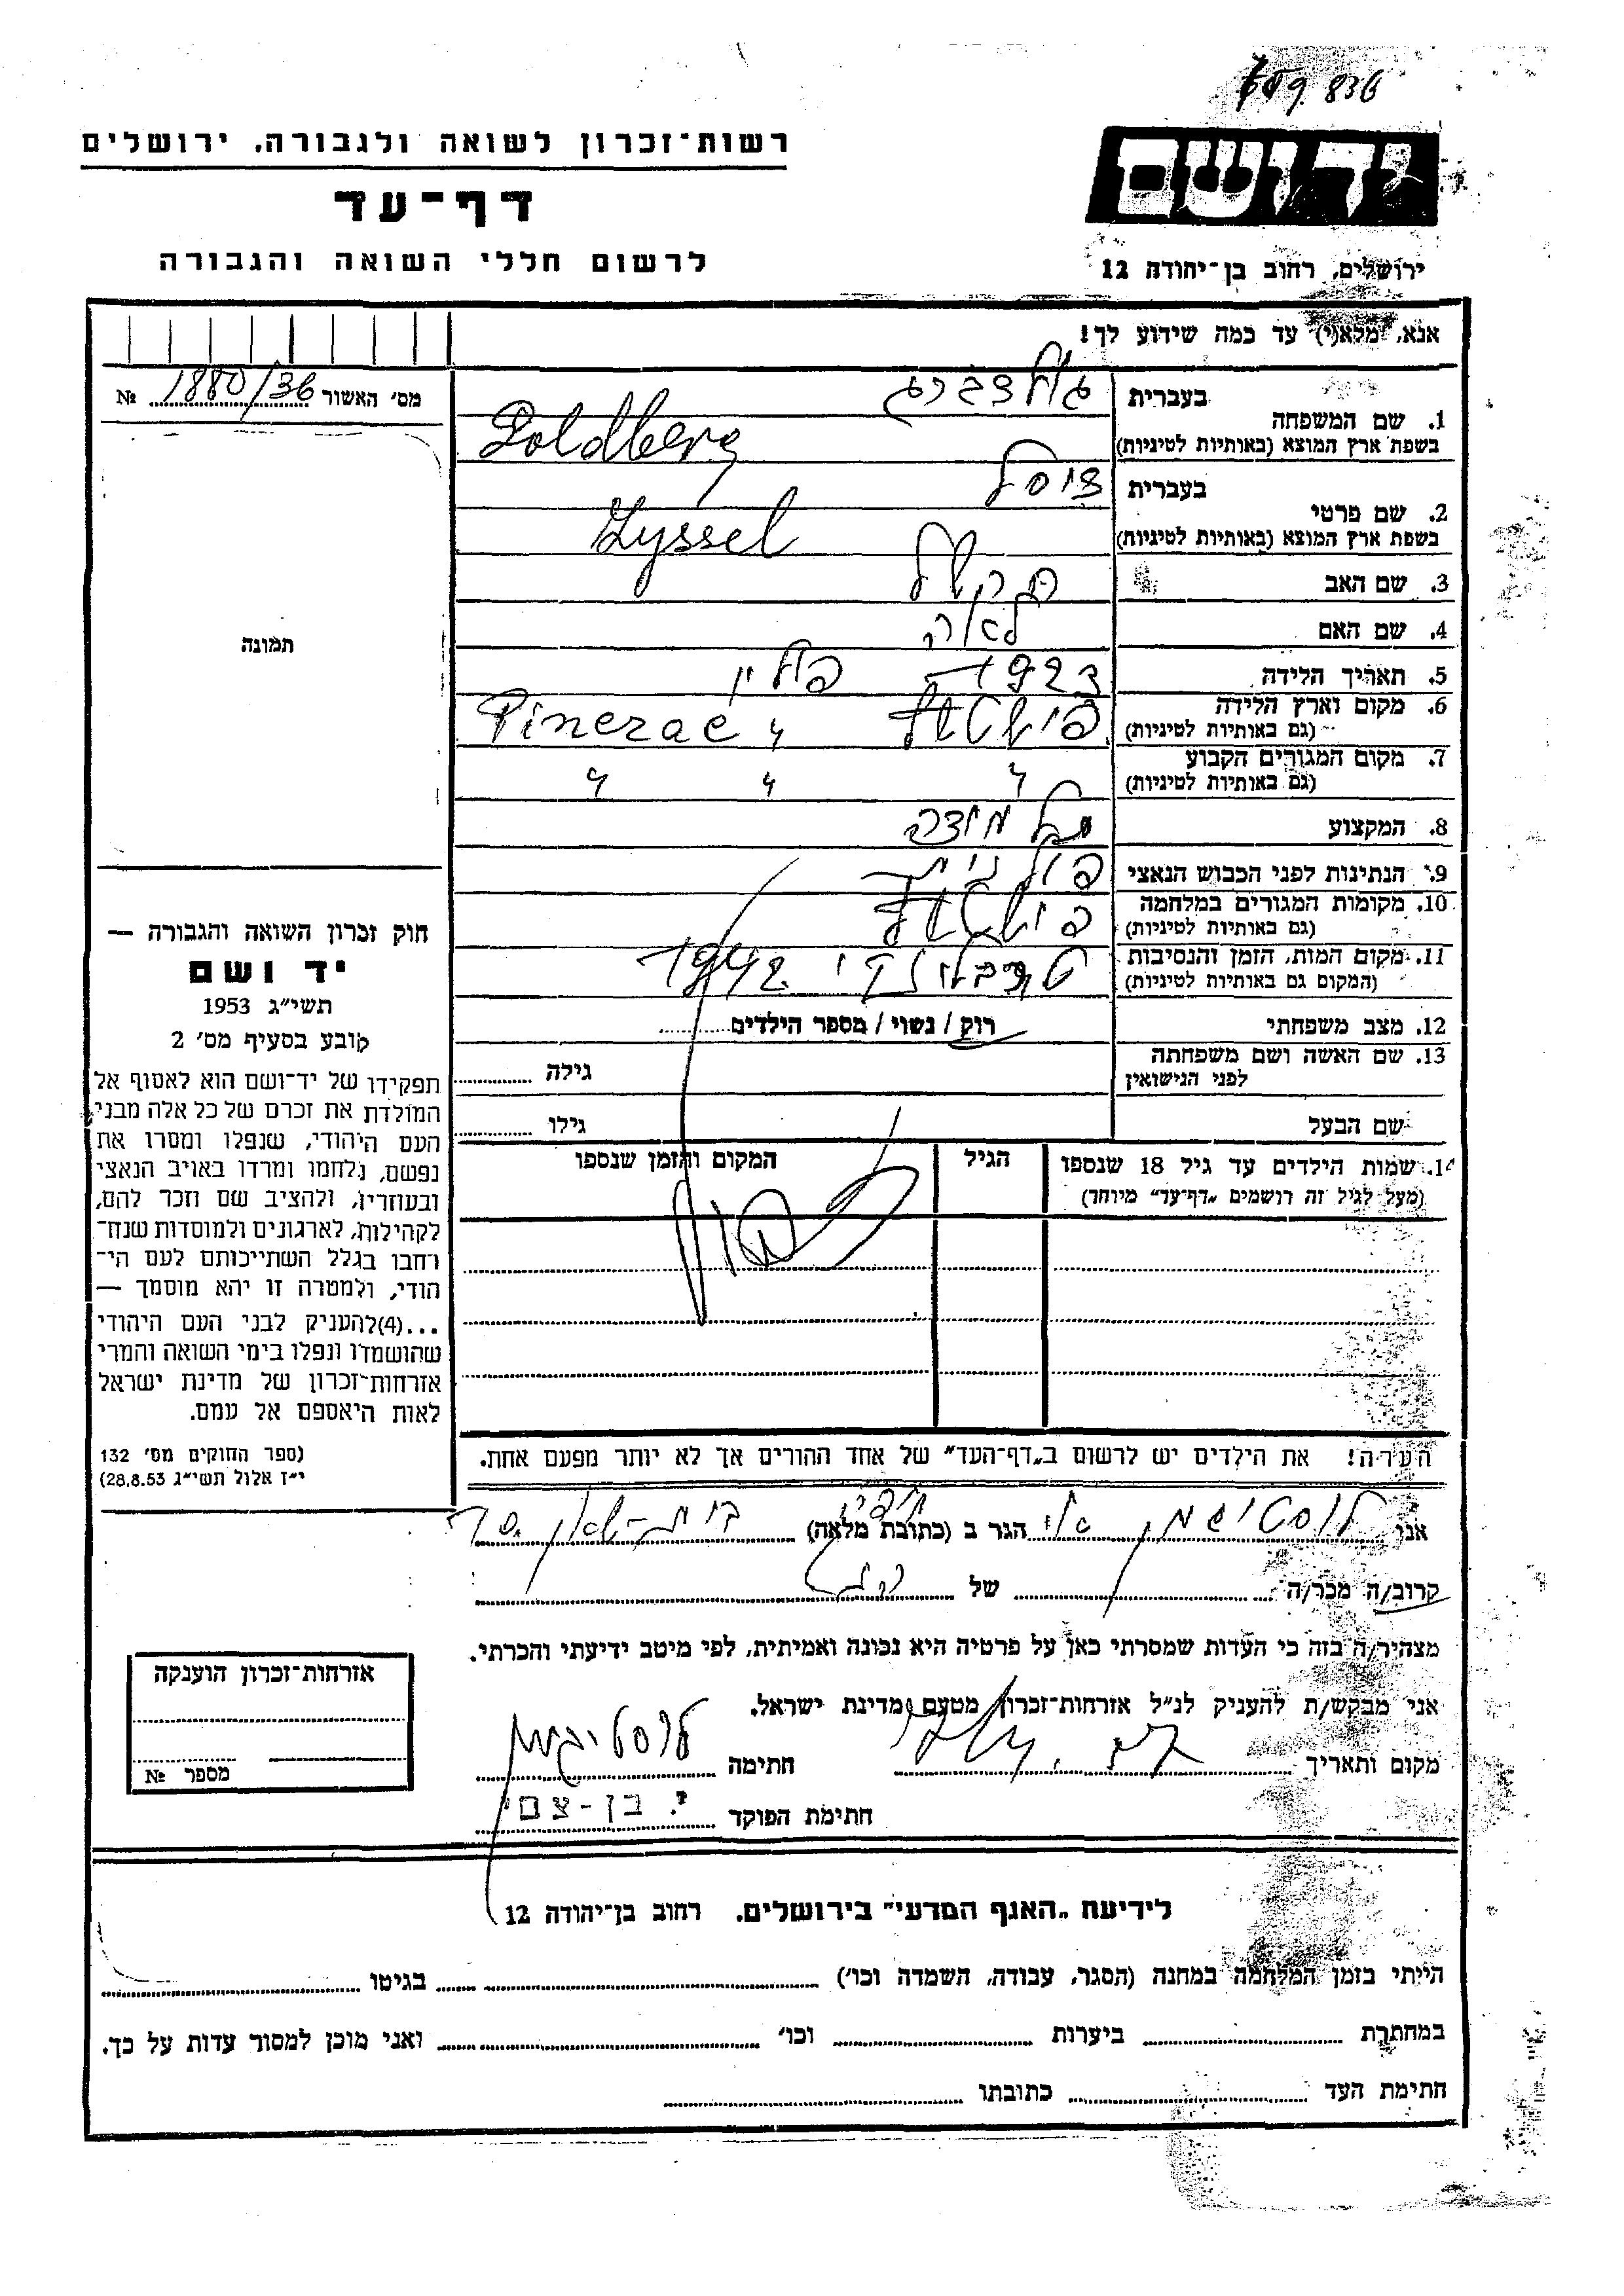 836
רשות־זכרון לשואה ולגבורה, ירושלים
יד ושם
דף־עד
לרשום חללי השואה והגבורה
ירושלים, רחוב בן־יהודה 12
אנא, מלא(י) עד כמה שידוע לך!
מס׳ האשור 1880/36 №
1. שם המשפחה בעברית גולדברג
בשפת ארץ המוצא (באותיות לטיניות) Goldberg
2. שם פרטי בעברית זיסל
בשפת ארץ המוצא (באותיות לטיניות) Zyssel
3. שם האב
4. שם האם לאה
5. תאריך הלידה 1927 פולין
6. מקום וארץ הלידה
(גם באותיות לטיניות)
7. מקום המגורים הקבוע
(גם באותיות לטיניות) " " "
8. המקצוע
9. הנתינות לפני הכבוש הנאצי פולנית
10. מקומות המגורים במלחמה
(גם באותיות לטיניות)
11. מקום המות, הזמן והנסיבות 1942
(המקום גם באותיות לטיניות)
12. מצב משפחתי רוק / נשוי / מספר הילדים
13. שם האשה ושם משפחתה
לפני הנישואין גילה
שם הבעל גילו
14. שמות הילדים עד גיל 18 שנספו הגיל המקום והזמן שנספו
(מעל לגיל זה רושמים „דף־עד" מיוחד)
תמונה
חוק זכרון השואה והגבורה —
יד ושם
תשי״ג 1953
קובע בסעיף מס׳ 2
תפקידו של יד־ושם הוא לאסוף אל
המולדת את זכרם של כל אלה מבני
העם היהודי, שנפלו ומסרו את
נפשם, נלחמו ומרדו באויב הנאצי
ובעוזריו, ולהציב שם וזכר להם,
לקהילות, לארגונים ולמוסדות שנח־
רחבו בגלל השתייכותם לעם הי־
הודי, ולמטרה זו יהא מוסמך —
...(4)להעניק לבני העם היהודי
שהושמדו ונפלו בימי השואה והמרי
אזרחות־זכרון של מדינת ישראל
לאות היאספם אל עמם.
(ספר החוקים מס׳ 132
י״ז אלול תשי״ג 28.8.53)
הערה! את הילדים יש לרשום ב„דף־העד" של אחד ההורים אך לא יותר מפעם אחת.
אני לוסטיגמן הגר ב (כתובת מלאה)
קרוב/ה מכר/ה של
מצהיר/ה בזה כי העדות שמסרתי כאן על פרטיה היא נכונה ואמיתית, לפי מיטב ידיעתי והכרתי.
אני מבקש/ת להעניק לנ״ל אזרחות־זכרון מטעם מדינת ישראל.
מקום ותאריך חתימה לוסטיגמן
חתימת הפוקד
אזרחות־זכרון הוענקה
מספר №
לידיעת „האגף המדעי" בירושלים, רחוב בן־יהודה 12
הייתי בזמן המלחמה במחנה (הסגר, עבודה, השמדה וכו׳) בגיטו
במחתרת ביערות וכו׳ ואני מוכן למסור עדות על כך.
חתימת העד כתובתו